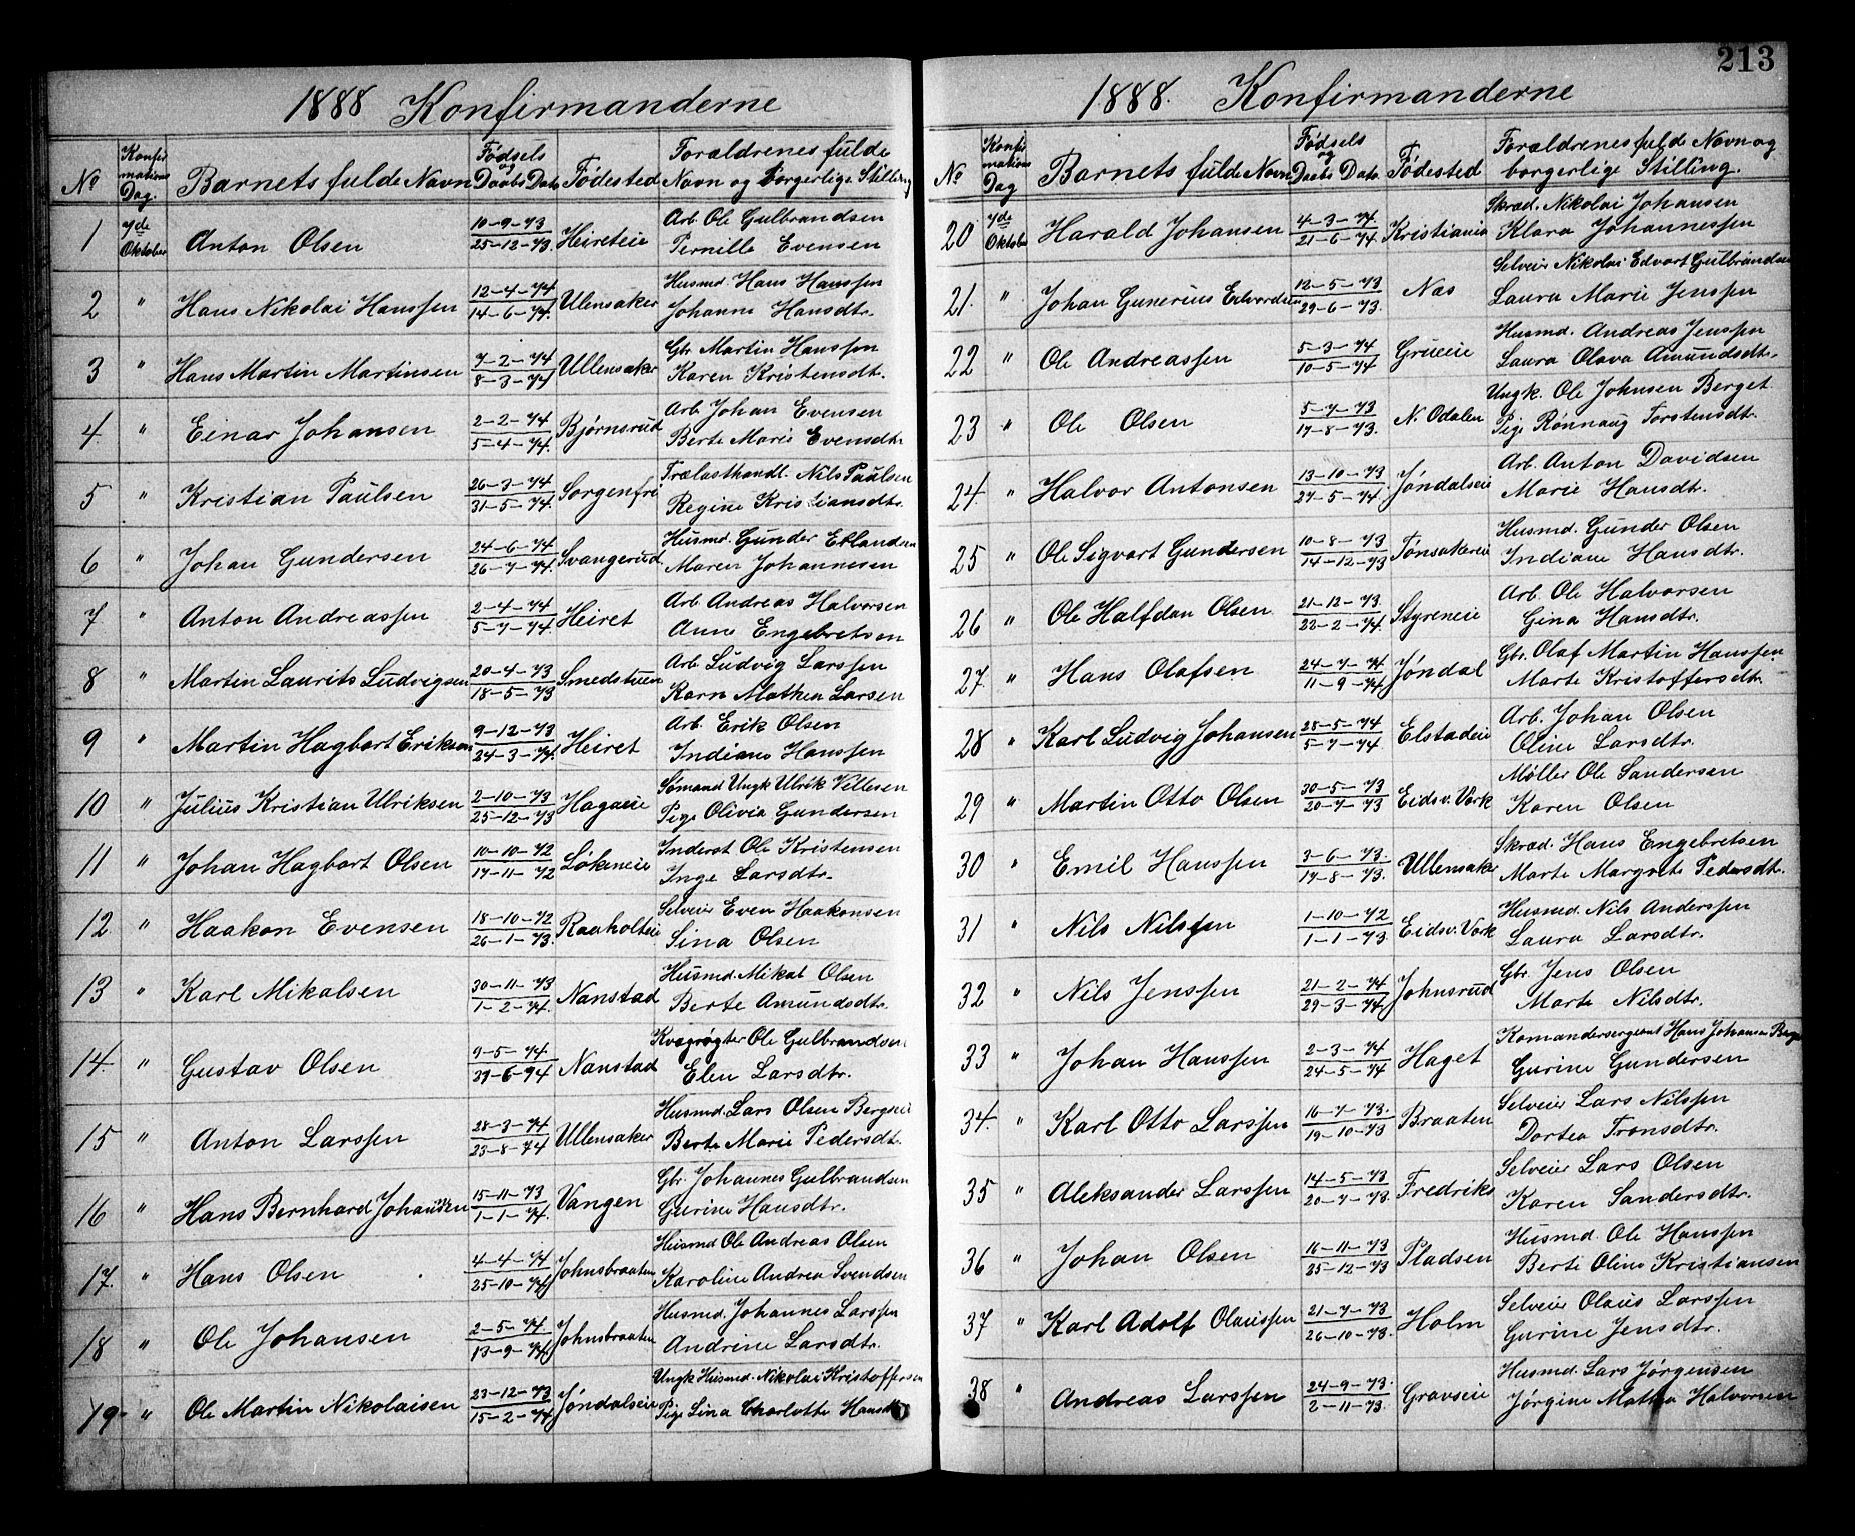 213
1888 Konfirmanderne
No Konfirmations Dag. Barnets fulde Navn Fødsels og Daabs Dato Fødested Forældrenes fulde Navn og borgerlige Stilling
1 7de Oktober Anton Olsen 10-9-73 25-12-73 Heireteie Arb. Ole Gulbrandsen
Pernille Evensen
2 " Hans Nikolai Hanssen 12-4-74 14-6-74. Ulensaker Husmd. Hans Hanssen
Johanne Hansdtr.
3 " Hans Martin Martinsen 7-2-74 8-3-74 Ullensaker Gbr. Martin Hanssen
Karen Kristensdt.
4. " Einar Johansen 2-2-74 5-4-74. Bjørnsrud Arb. Johan Evensen
Berte Marie Evensdtr.
5 " Kristian Paulsen 26-3-74 31-5-74. Sorgenfri Trælasthandl. Nils Paulsen
Regine Kristiansdtr.
6 " Johan Gundersen 24-6-74 26-7-74. Svangerud. Husmd. Gunder Erlandsen
Maren Johannesen
7 " Anton Andreassen 2-4-74 5-7-74. Heiret Arb. Andreas Halvorsen
Anne Engebretsen
8 " Martin Laurits Ludvigsen 20-4-73 18-5-73 Smedstuen Arb. Ludvig Larssen
Karn Mathea Larsen
9 " Martin Hagbart Eriksen 9-12-73 24-3-74. Heiret Arb. Erik Olsen
Indiane Hanssen
10 " Julius Kristian Ulriksen 2-10-73 25-12-73 Hagaeie Sømand Ungk Ulrik Villesen
Pige Olivia Gundersen
11 " Johan Hagbart Olsen 10-10-72 17-11-72 Løkeneie Inderst Ole Kristensen
Inge Larsdtr.
12 " Haakon Evensen 18-10-72 26-1-73. Raaholteie Selveier Even Haakonsen
Lina Olsen
13 " Karl Mikalsen 30-11-73 1-2-74. Nanstad Husmd. Mikal Olsen
Berte Amundsdtr.
14. " Gustav Olsen 9-5-74 29-6-74 Nanstad Kvægrøgter Ole Gulbrandsen
Elen Larsdtr.
15 " Anton Larssen 28-3-74 23-8-74 Ullensaker Husmd. Lars Olsen Bergseie
Berte Marie Pedersdt.
16 " Hans Bernhard Johansen 15-11-73 1-1-74. Vangen Gbr. Johannes Gulbrandsen
Gurine Hansdtr.
17. " Hans Olsen 4-4-74 25-10-74 Johnsbraaten Husmd Ole Andreas Olsen
Karoline Andrea Svendsen
18 " Ole Johansen 2-5-74. 13-9-74. Johnsbraaten Husmd. Johannes Larssen
Andrine Larsdtr.
19 " Ole Martin Nikolaisen 23-12-73 15-2-74. Jøndalseie Ungk Husmd. Nikolai Kristoffersen
Pige Lina Charlotte Hansdtr
1888. Konfirmanderne
No Konfirmations Dag Barnets fulde Navn Fødsels og Daabs Dato. Fødested Forældrenes fulde Navn og borgerlige Stilling.
20 7de Oktober Harald Johansen 4-3-74. 21-6-74. Kristiania Skræd. Nikolai Johansen
Klara Johannessen
21. " Johan Gunerius Edvardsen 12-5-73 29-6-73. Næs Selveier Nikolai Edvart Gulbrandsen
Laura Marie Jenssen
22 " Ole Andreassen 5-3-74 10-5-74 Grueeie Husmd. Andreas Jenssen
Laura Olava Amundsdtr.
23 " Ole Olsen 5-7-73 17-8-73. N. Odalen Ungk. Ole Johnsen Berget
Pige Rønnaug Torstensdt.
24. " Halvor Antonsen 13-10-73 27-5-74. Jøndalseie Arb. Anton Davidsen
Marie Hansdtr.
25 " Ole Sigvart Gundersen 10-8-73 14-12-73 Tønsakereie Husmd. Gunder Olsen
Indiane Hansdtr.
26 " Ole Halfdan Olsen 21-12-73. 22-2-74. Styreneie Arb. Ole Halvorsen
Gina Hansdtr.
27. " Hans Olafsen 24-7-74 11-9-74 Jøndal Gbr. Olaf Martin Hanssen
Marte Kristoffersdtr.
28 " Karl Ludvig Johansen 28-5-74 5-7-74 Elstadeie Arb. Johan Olsen
Oline Larsdtr.
29 " Martin Otto Olsen 30-5-73 20-7-73 Eidsv. Værk Møller Ole Sandersen
Karen Olsen
30 " Emil Hanssen 3-6-73. 17-8-73. Ullensaker Skræd. Hans Engebretsen
Marte Margrete Pedersdt.
31 " Nils Nilssen 1-10-72 1-1-73. Eidsv. Værk Husmd. Nils Anderssen
Laura Larsdtr.
32 " Nils Jenssen 21-2-74 29-3-74. Johnsrud Gbr. Jens Olsen
Marte Nilsdtr.
33 " Johan Hanssen 2-3-74 24-5-74 Haget Komandersergeant Hans Johansen
Gurine Gundersen
34. " Karl Otto Larssen 16-7-73. 19-10-73 Braaten Selveier Lars Nilssen
Dortea Tronsdtr.
35 " Aleksander Larssen 14-5-73 20-7-73. Fredriks Selveier Lars Olsen
Karen Sandersdtr.
36 " Johan Olsen 16-11-73 25-12-73 Pladsen Husmd. Ole Hanssen
Berte Oline Kristiansen
37 " Karl Adolf Olaussen 21-7-73 26-10-73. Holm Selveier Olaus Larssen
Gurine Jensdtr.
38 " Andreas Larssen 24-9-73. 2-11-73. Gravseie Husmd. Lars Jørgensen
Jørgine Mathea Halvorsen